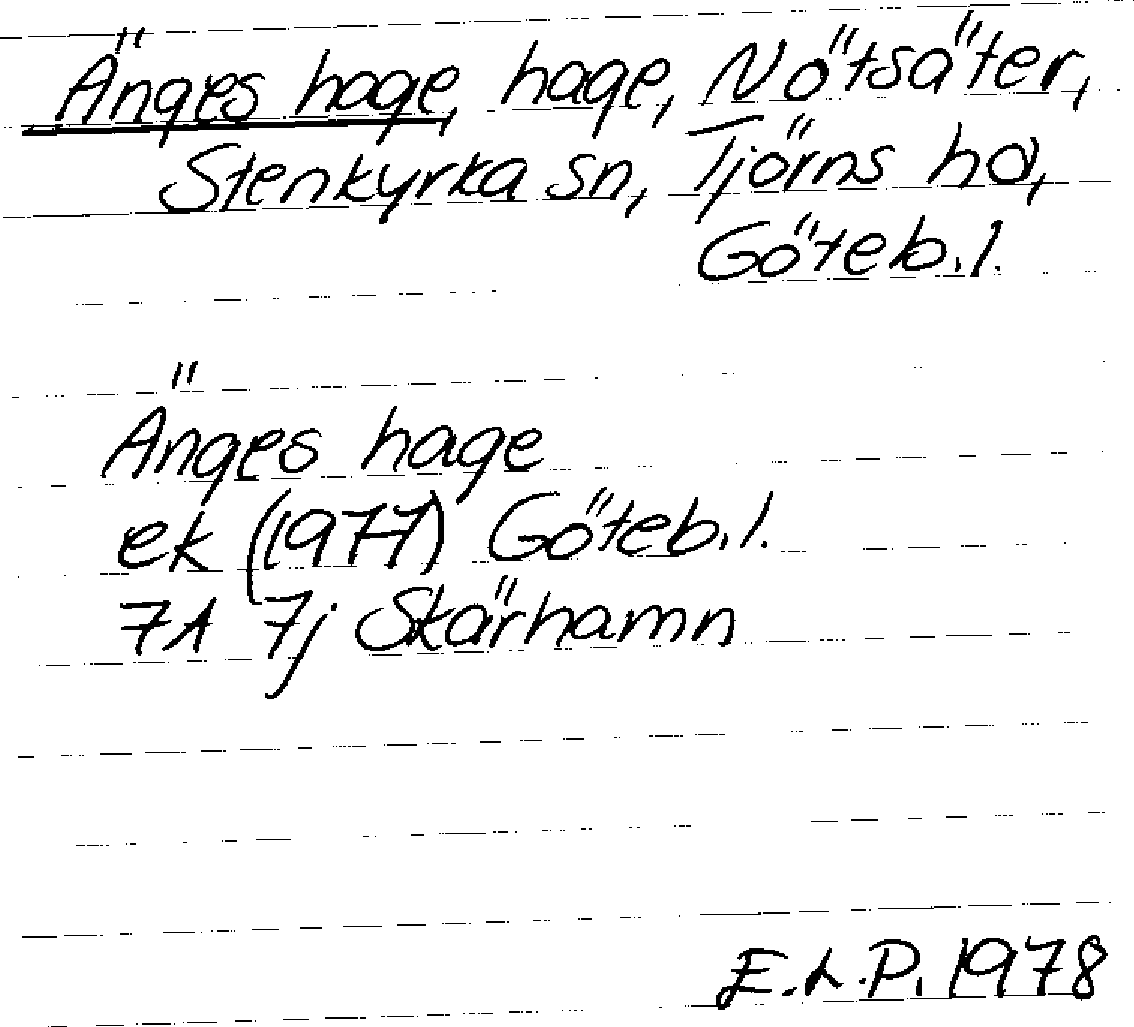 Änges hage, hage, Nötsäter,
Stenkyrka sn, Tjörns hd,
Göteb.l.
Änges hage
ek (1977) Göteb.l.
7A 7j Skärhamn
E.L.P. 1978